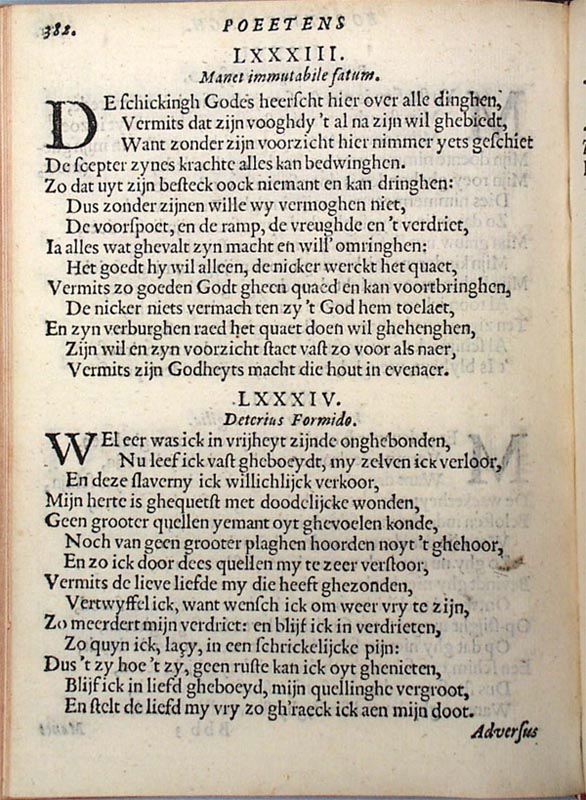 382. POEETENS
LXXXIII.
Manet immutabile fatum.
DE schickingh Godes heerscht hier over alle dinghen,
Vermits dat zijn vooghdy 't al na zijn wil ghebiedt,
Want zonder zijn voorzicht hier nimmer yets geschiet
De scepter zynes krachte alles kan bedwinghen.
Zo dat uyt zijn besteck oock niemant en kan dringhen:
Dus zonder zijnen wille wy vermoghen niet,
De voorspoet, en de ramp, de vreughde en 't verdriet,
Ia alles wat ghevalt zyn macht en will' omringhen:
Het goedt hy wil alleen, de nicker werckt het quaet,
Vermits zo goeden Godt gheen quaed en kan voortbringhen,
De nicker niets vermach ten zy 't God hem toelaet,
En zyn verburghen raed het quaet doen wil ghehenghen,
Zijn wil en zyn voorzicht staet vast zo voor als naer,
Vermits zijn Godheyts macht die hout in evenaer.
LXXXIV.
Deterius Formido.
WEl eer was ick in vrijheyt zijnde onghebonden,
Nu leef ick vast gheboeydt, my zelven ick verloor,
En deze slaverny ick willichlijck verkoor,
Mijn herte is ghequetst met doodelijcke wonden,
Geen grooter quellen yemant oyt ghevoelen konde,
Noch van geen grooter plaghen hoorden noyt 't ghehoor,
En zo ick door dees quellen my te zeer verstoor,
Vermits de lieve liefde my die heeft ghezonden,
Vertwyffel ick, want wensch ick om weer vry te zijn,
Zo meerdert mijn verdriet: en blijf ick in verdrieten,
Zo quyn ick, lacy, in een schrickelijcke pijn:
Dus 't zy hoe 't zy, geen ruste kan ick oyt ghenieten,
Blijf ick in liefd gheboeyd, mijn quellinghe vergroot,
En stelt de liefd my vry zo gh'raeck ick aen mijn doot.
Adversus